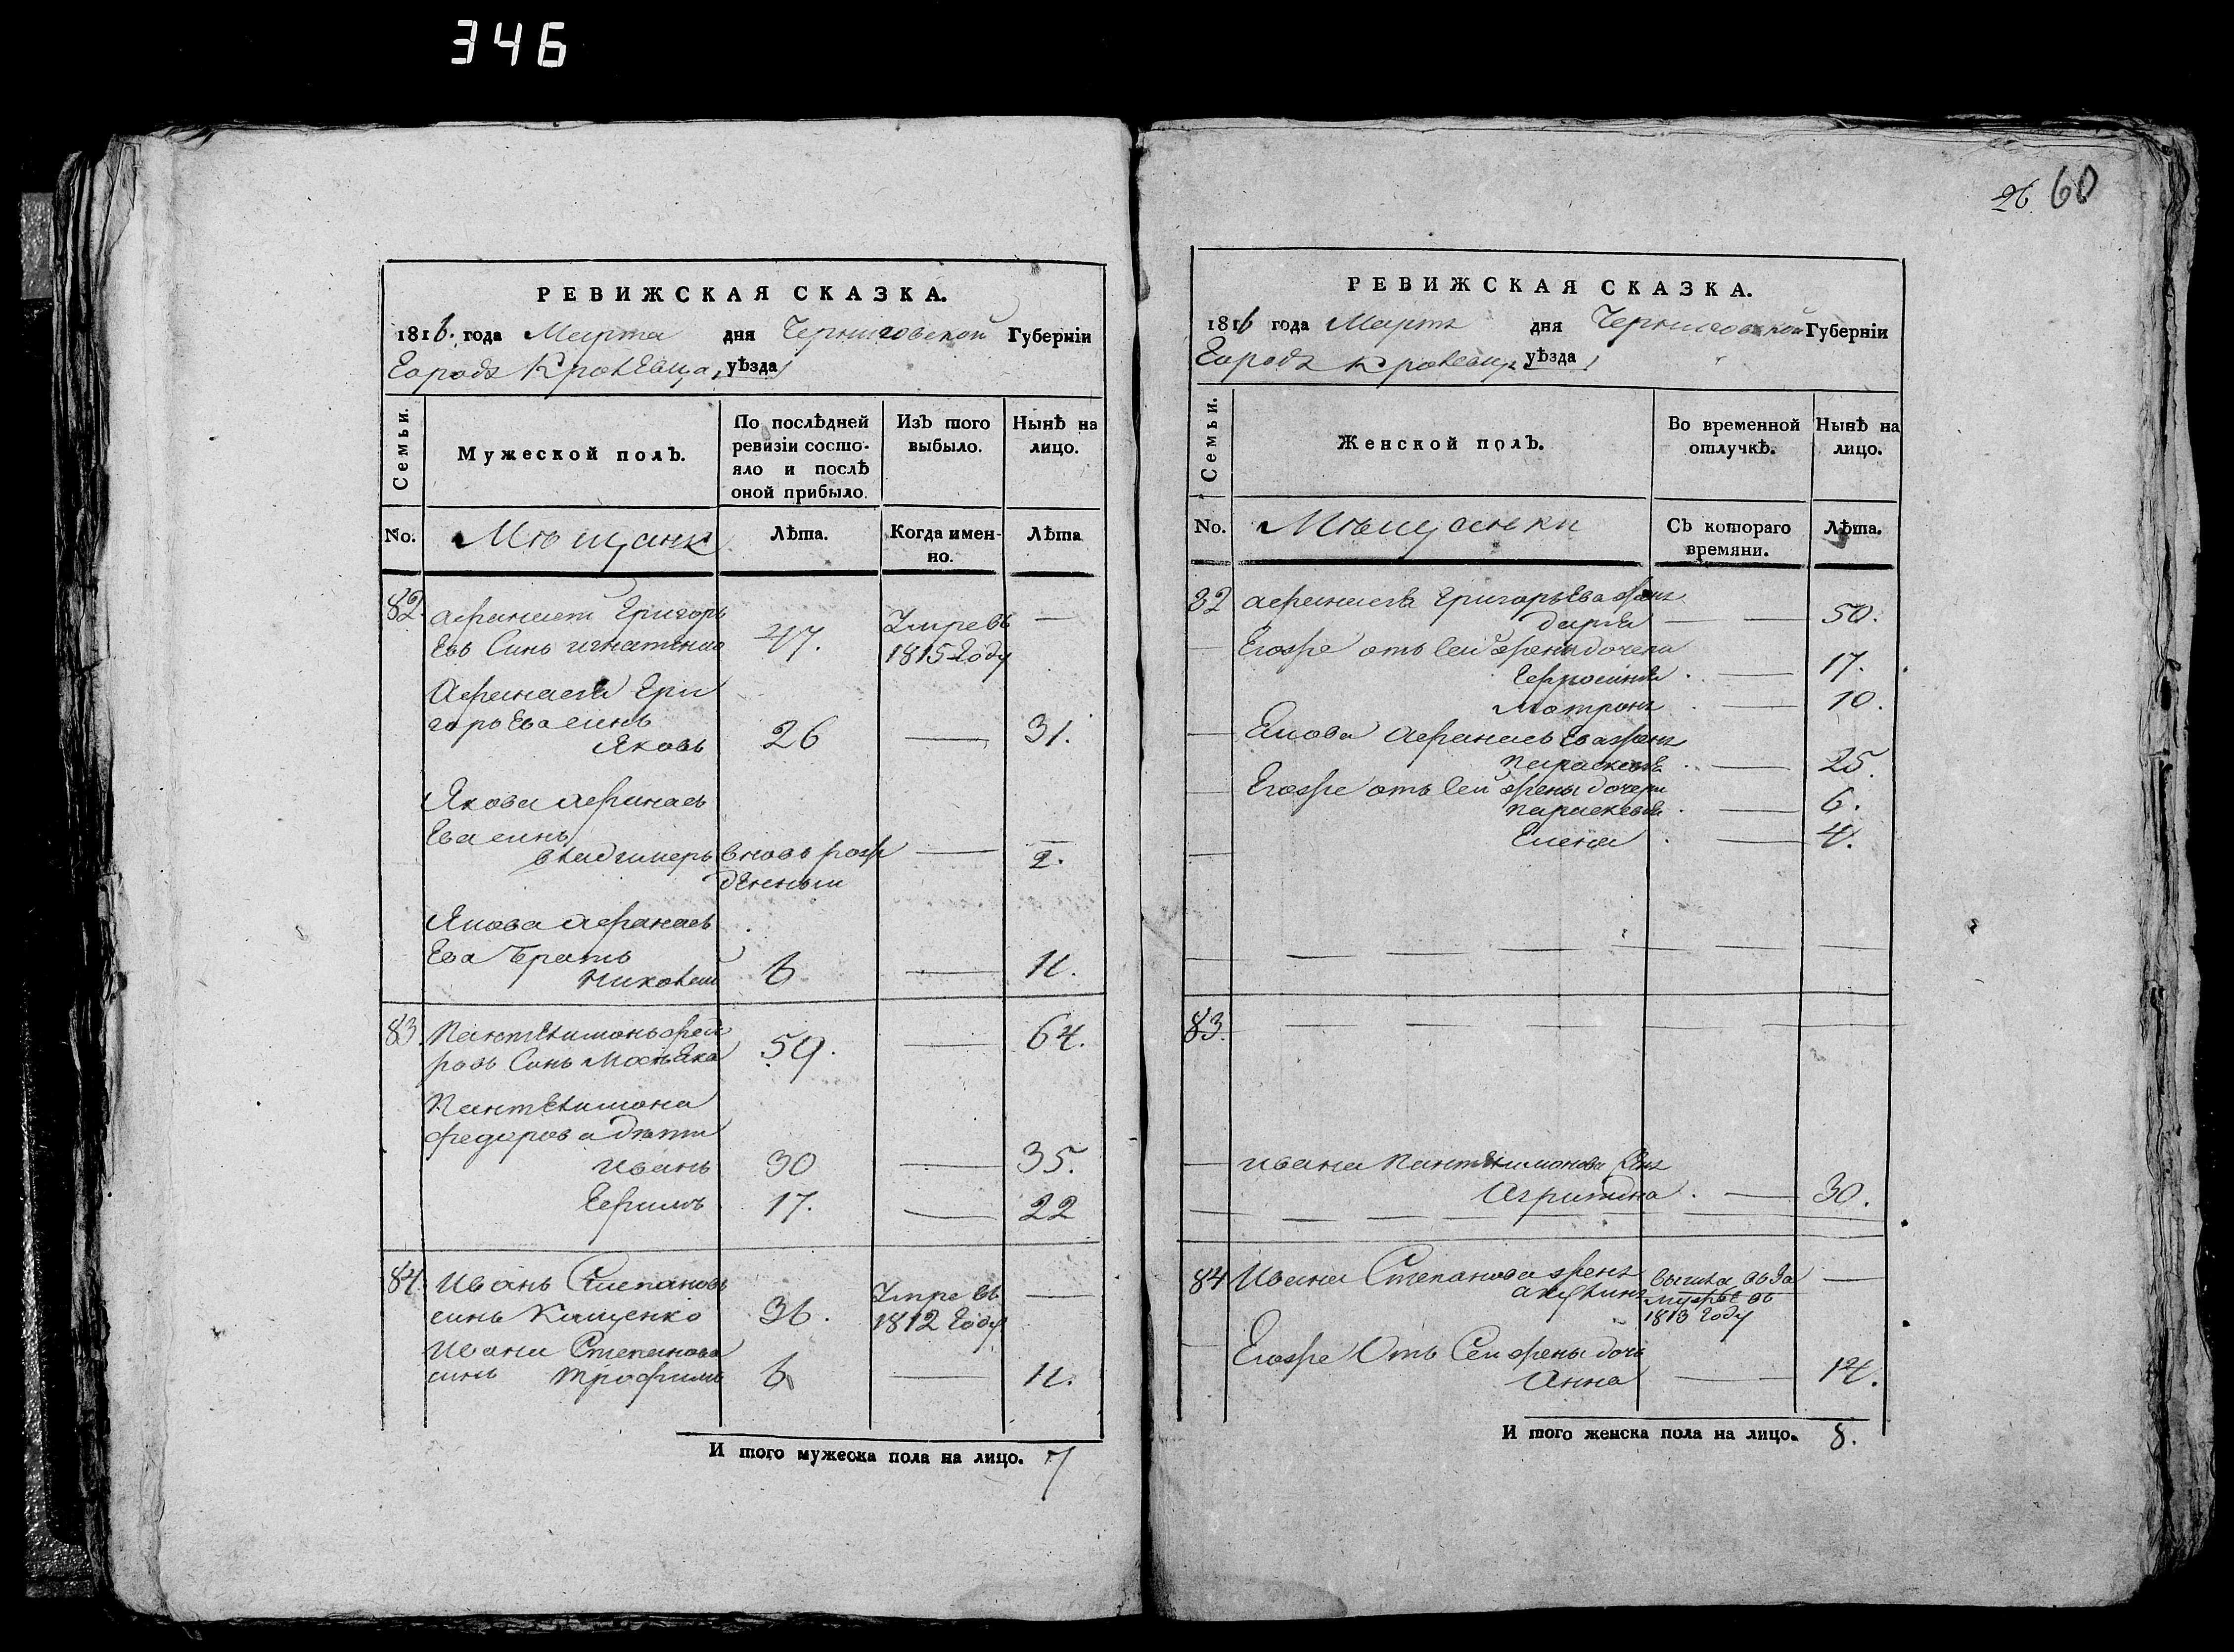 346
РЕВИЖСКАЯ СКАЗКА.
1816. года Марта дня Черниговской Губерніи
Города Кролевца, уѣзда
Семьи.
Мужеской полъ.
По послѣдней ревизіи состояло и послѣ оной прибыло.
Изъ того выбыло.
Нынѣ на лицо.
No. Мѣщанѣ Лѣта. Когда именно. Лѣта
82. Афанасей Григорь
евъ Синъ Игнатенко 47. Умре въ 1815 Году —
Афанасия Гри
горьева синъ
Яковъ 26 — 31.
Якова Афанась
ева синъ
Владимеръ вновь рож
денный — 2.
Якова Афанась
ева братъ
Николай 6 — 11.
83. Пантелимонъ Фед
ровъ Синъ 59. — 64.
Пантелимона
Федорова дѣти
Иванъ 30 — 35.
Ефимъ 17. — 22
84. Иванъ Степановъ
синъ Кащенко 36. Умре въ 1812 Году —
Ивана Степанова
синъ Трофимъ 6 — 11.
И того мужеска пола на лицо. 7
26. 60
РЕВИЖСКАЯ СКАЗКА.
1816 года Марта дня Черниговской Губерніи
Города Кролевца уѣзда
Семьи.
Женской полъ.
Во временной отлучкѣ.
Нынѣ на лицо.
No. Мѣщанки Съ котораго времяни. Лѣта.
82 Афанасия Григорьева жена
Дария — — 50.
Егоже отъ сей жены дочери
Ефросиния — 17.
Матрона — 10.
Якова Афанасьева жена
Параскевия — 25.
Егоже отъ сей жены дочери
Параскевия — 6.
Елена — 4.
83.
Ивана Пантелимонова жена
Агрипина — 30.
84 Ивана Степанова жена
Акулина вышла въ за
мужье въ
1813 Году —
Егоже Отъ Сей жены дочь
Анна — 14.
И того женска пола на лицо. 8.